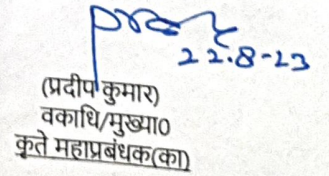 22.8-23
(प्रदीप कुमार)
वकाधि/मुख्या0
कृते महाप्रबंधक(का)